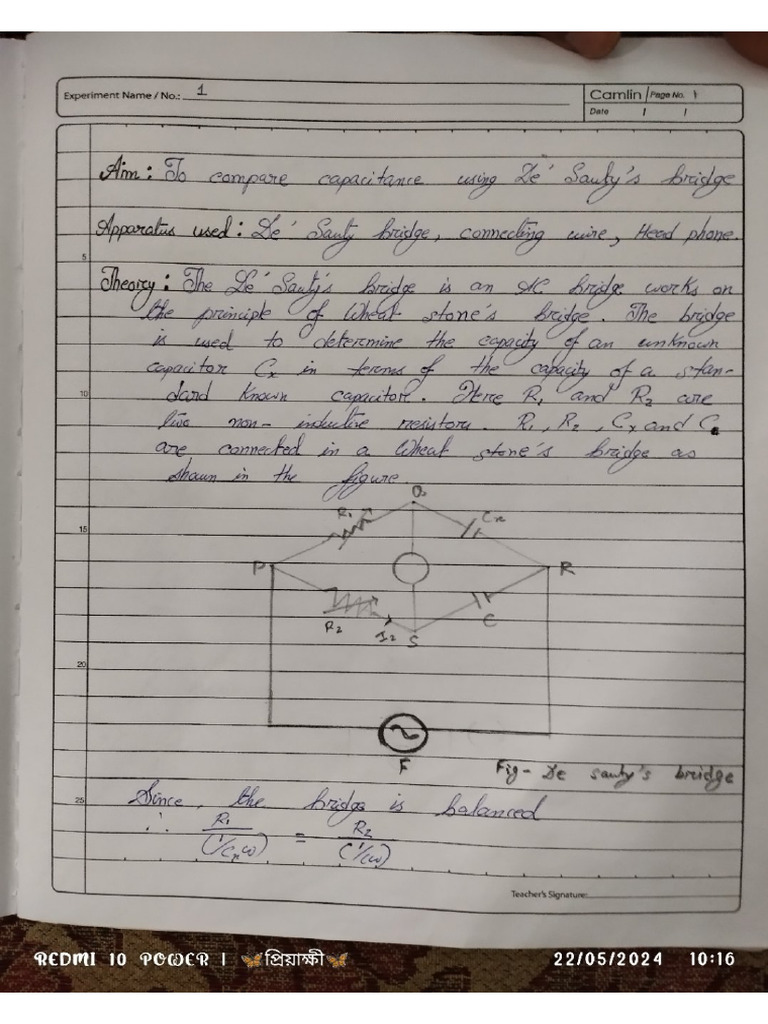 Experiment Name / No.: 1
Camlin Page No. 1
Date / /
Aim: To compare capacitance using De' Sauty's bridge
Apparatus used: De' Sauty bridge, connecting wire, Head phone.
5
Theory: The De' Sauty's bridge is an AC bridge works on
the principle of Wheat stone's bridge. The bridge
is used to determine the capacity of an unknown
capacitor Cx in terms of the capacity of a stan-
10 dard known capacitor. Here R1 and R2 are
two non-inductive resistors. R1, R2, Cx and C
are connected in a Wheat stone's bridge as
shown in the figure.
R1 Cx
15
P R
R2 I2 S C
20
F
Fig- De sauty's bridge
25 Since, the bridge is balanced
∴ R1/(1/Cxω) = R2/(1/Cω)
Teacher's Signature:
REDMI 10 POWER | 🦋প্রিয়াক্ষী🦋 22/05/2024 10:16